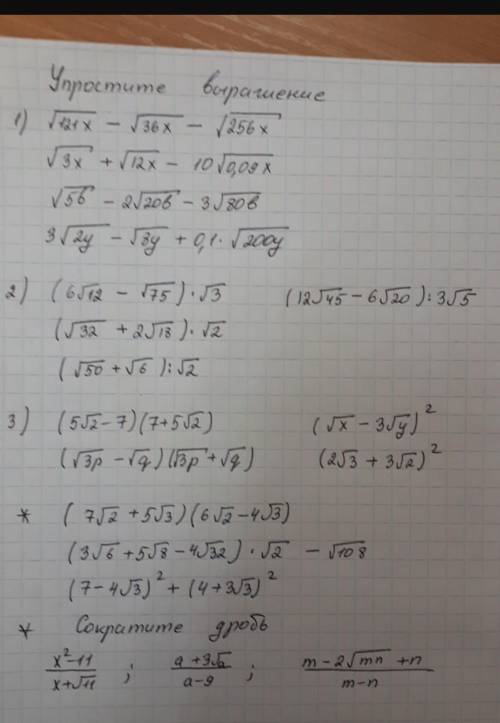 Упростите выражение
1) √121x − √36x − √256x
√3x + √12x − 10√0,09x
√5b − 2√20b − 3√80b
3√2y − √8y + 0,1·√200y
2) (6√12 − √75)·√3 (12√45 − 6√20):3√5
(√32 + 2√18)·√2
(√50 + √6):√2
3) (5√2−7)(7+5√2) (√x − 3√y)²
(√3p − √q)(√3p + √q) (2√3 + 3√2)²
* (7√2 + 5√3)(6√2−4√3)
(3√6 + 5√8 − 4√32)·√2 − √108
(7−4√3)² + (4+3√3)²
* Сократите дробь
x²−11/x+√11 ; a+3√a/a−9 ; m−2√mn+n/m−n